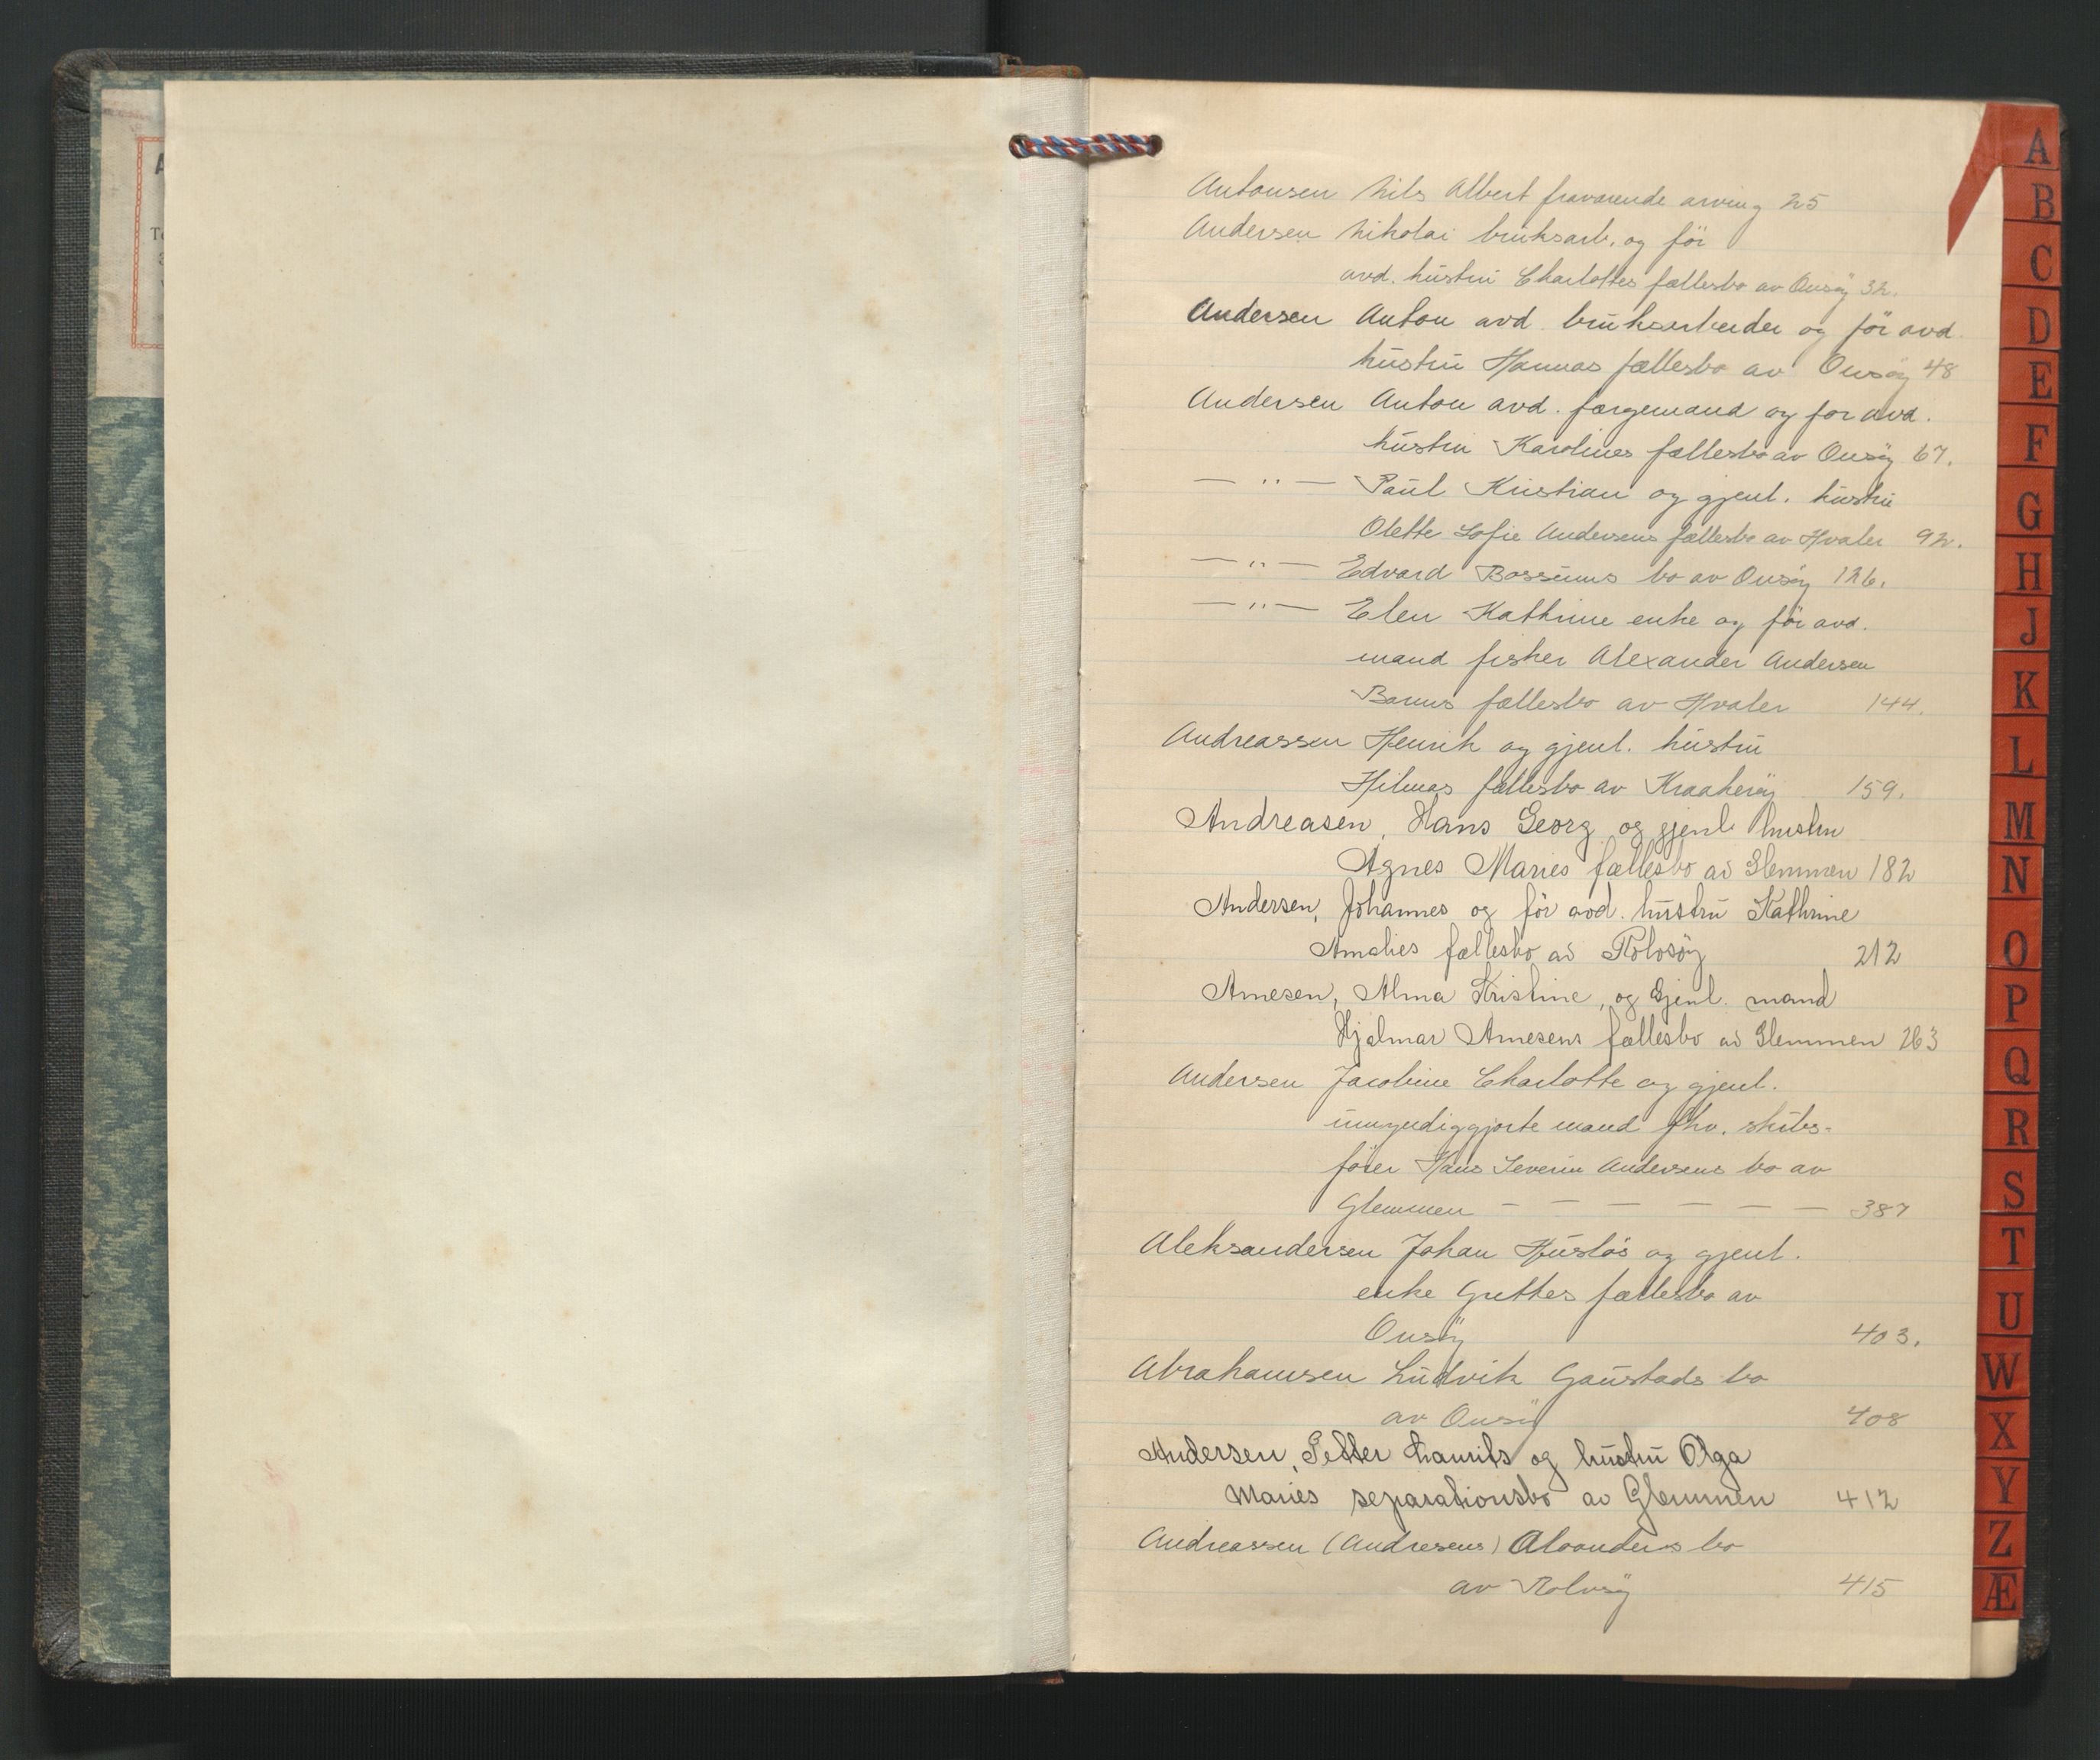 Antonsen Nils Albert fraværende arving 25
Andersen Nikolai bruksarb. og før
avd. hustru Charlottes fællesbo av Onsøy 32.
Andersen Anton avd. bruksarbeider og før avd.
hustru Hannas fællesbo av Onsøy 48
Andersen Anton avd. færgemand og før avd.
hustru Karolines fællesbo av Onsøy 67.
— " — Paul Kristian og gjenl. hustru
Olette Sofie Andersens fællesbo av Hvaler 92.
— " — Edvard Bossums bo av Onsøy 126.
— " — Elen Kathrine enke og før avd.
mand fisker Alexander Andersen
fællesbo av Hvaler 144.
Andreassen Henrik og gjenl. hustru
Hilmas fællesbo av Kraakerøy 159.
Andreasen, Hans Georg og gjenl. hustru
Agnes Maries fællesbo av Glemmen 182
Andersen, Johannes og før avd. hustru Kathrine
Amalies fællesbo av Rolvsøy 212
Arnesen, Alma Kristine, og gjenl. mand
Hjalmar Arnesens fællesbo av Glemmen 263
Andersen Jacobine Charlotte og gjenl.
umyndiggjorte mand fhv. skibs-
fører Hans Severin Andersens bo av
Glemmen — — — — — — 387
Aleksandersen Johan Husløs og gjenl.
enke Grethes fællesbo av
Onsøy 403.
Abrahamsen Ludvik Gaustads bo
av Onsøy 408
Andersen, Petter Laurits og hustru Olga
Maries separationsbo av Glemmen 412
Andreassen (Andresens) bo
av Rolvsøy 415
A
B
C
D
E
F
G
H
J
K
L
M
N
O
P
Q
R
S
T
U
W
X
Y
Z
Æ